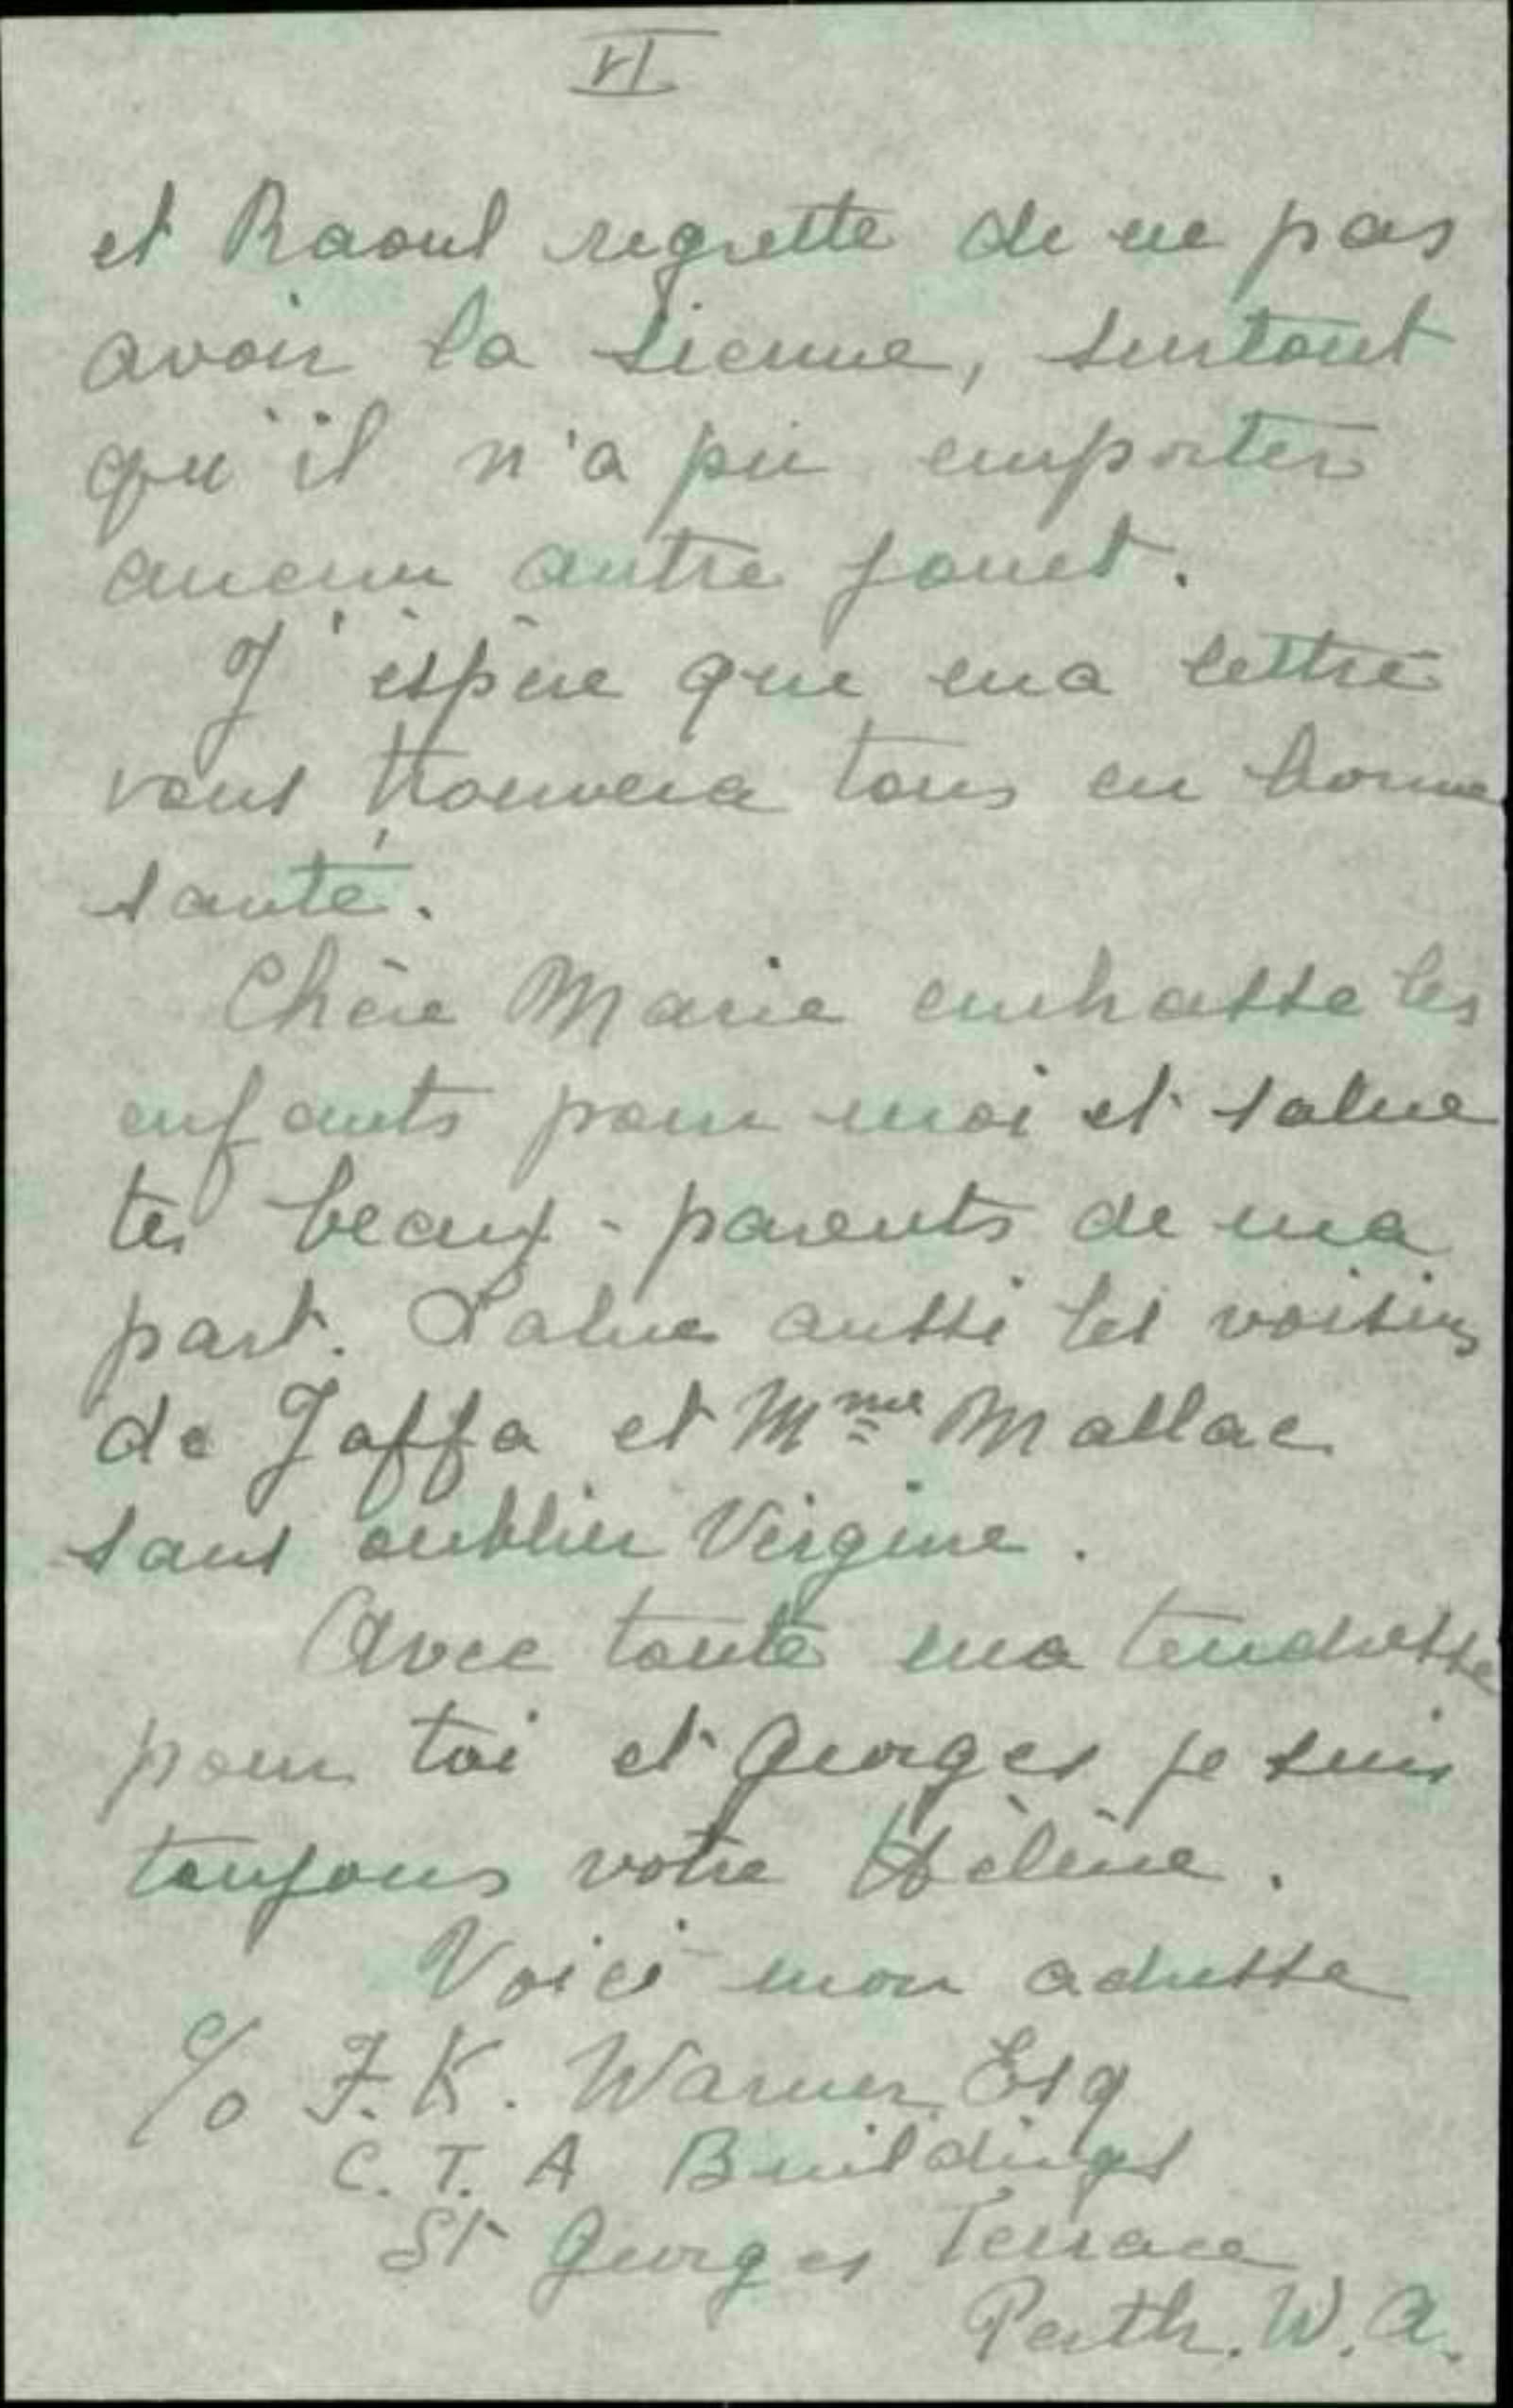 VI
et Raoul regrette de ne pas
avoir la sienne, surtout
qu'il n'a pu emporter
aucun autre jouet.
J'espère que ma lettre
vous trouvera tous en bonne
santé.
Chère Marie embrasse les
enfants pour moi et salue
tes beaux-parents de ma
part. Salue aussi les voisins
de Jaffa et Mme Mallac
sans oublier Vergine.
Avec toute ma tendresse
pour toi et Georges je suis
toujours votre Hélène.
Voici mon adresse
c/o F. K. Warner Esq
C. T. A Buildings
St Georges Terrace
Perth. W. A.